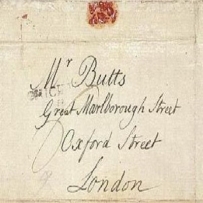 Mr Butts
Great Marlborough Street
Oxford Street
London